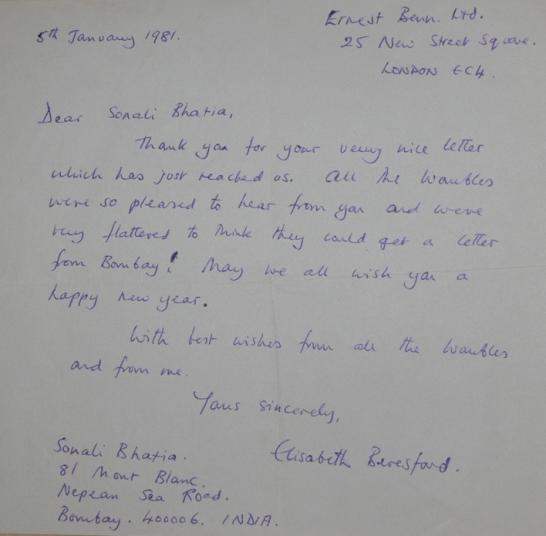 5th January 1981.
Ernest Benn. Ltd.
25 New Street Square.
LONDON EC4.
Dear Sonali Bhatia,
Thank you for your very nice letter
which has just reached us. All the Wombles
were so pleased to hear from you and were
very flattered to think they could get a letter
from Bombay! May we all wish you a
happy new year.
With best wishes from all the Wombles
and from me.
Yours sincerely,
Elisabeth Beresford.
Sonali Bhatia.
81 Mont Blanc.
Nepean Sea Road.
Bombay. 400006. INDIA.